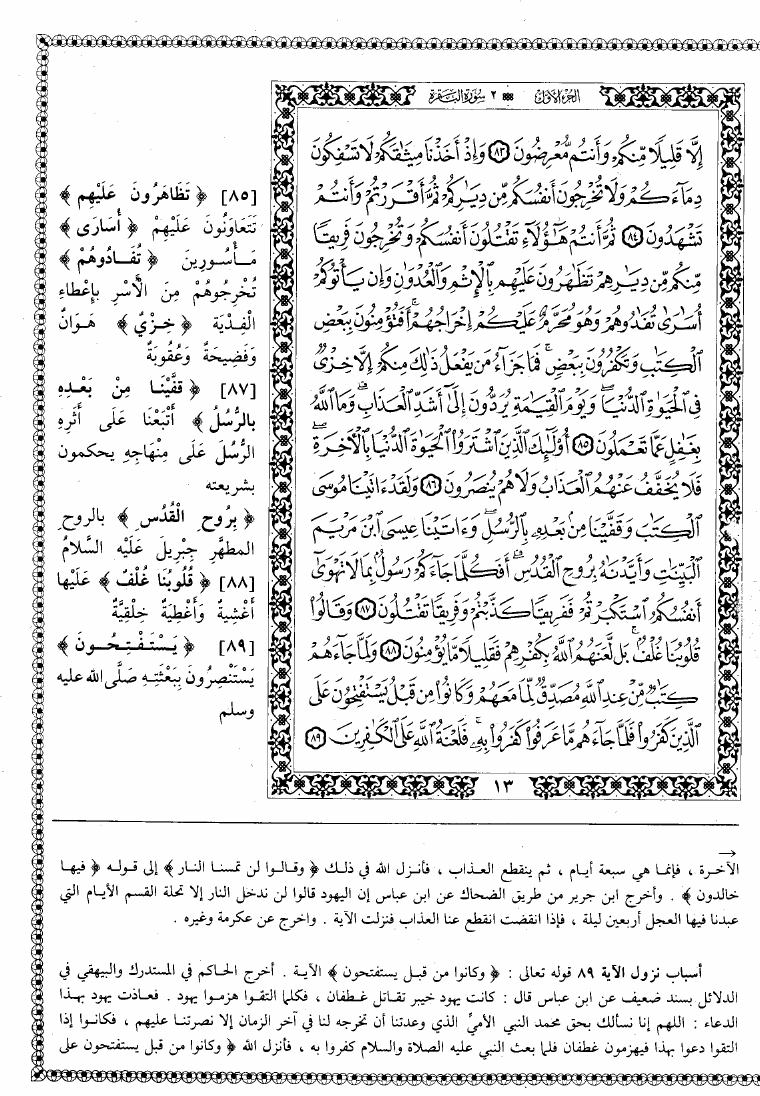 الجزء الأول ٢ سورة البقرة
إِلَّا قَلِيلًا مِّنكُمْ وَأَنتُم مُّعْرِضُونَ ٨٣ وَإِذْ أَخَذْنَا مِيثَٰقَكُمْ لَا تَسْفِكُونَ
دِمَآءَكُمْ وَلَا تُخْرِجُونَ أَنفُسَكُم مِّن دِيَٰرِكُمْ ثُمَّ أَقْرَرْتُمْ وَأَنتُمْ
تَشْهَدُونَ ٨٤ ثُمَّ أَنتُمْ هَٰٓؤُلَآءِ تَقْتُلُونَ أَنفُسَكُمْ وَتُخْرِجُونَ فَرِيقًا
مِّنكُم مِّن دِيَٰرِهِمْ تَظَٰهَرُونَ عَلَيْهِم بِٱلْإِثْمِ وَٱلْعُدْوَٰنِ وَإِن يَأْتُوكُمْ
أُسَٰرَىٰ تُفَٰدُوهُمْ وَهُوَ مُحَرَّمٌ عَلَيْكُمْ إِخْرَاجُهُمْ أَفَتُؤْمِنُونَ بِبَعْضِ
ٱلْكِتَٰبِ وَتَكْفُرُونَ بِبَعْضٍ فَمَا جَزَآءُ مَن يَفْعَلُ ذَٰلِكَ مِنكُمْ إِلَّا خِزْىٌ
فِى ٱلْحَيَوٰةِ ٱلدُّنْيَا وَيَوْمَ ٱلْقِيَٰمَةِ يُرَدُّونَ إِلَىٰٓ أَشَدِّ ٱلْعَذَابِ وَمَا ٱللَّهُ
بِغَٰفِلٍ عَمَّا تَعْمَلُونَ ٨٥ أُو۟لَٰٓئِكَ ٱلَّذِينَ ٱشْتَرَوُا۟ ٱلْحَيَوٰةَ ٱلدُّنْيَا بِٱلْءَاخِرَةِ
فَلَا يُخَفَّفُ عَنْهُمُ ٱلْعَذَابُ وَلَا هُمْ يُنصَرُونَ ٨٦ وَلَقَدْ ءَاتَيْنَا مُوسَى
ٱلْكِتَٰبَ وَقَفَّيْنَا مِنۢ بَعْدِهِۦ بِٱلرُّسُلِ وَءَاتَيْنَا عِيسَى ٱبْنَ مَرْيَمَ
ٱلْبَيِّنَٰتِ وَأَيَّدْنَٰهُ بِرُوحِ ٱلْقُدُسِ أَفَكُلَّمَا جَآءَكُمْ رَسُولٌۢ بِمَا لَا تَهْوَىٰٓ
أَنفُسُكُمُ ٱسْتَكْبَرْتُمْ فَفَرِيقًا كَذَّبْتُمْ وَفَرِيقًا تَقْتُلُونَ ٨٧ وَقَالُوا۟
قُلُوبُنَا غُلْفٌۢ بَل لَّعَنَهُمُ ٱللَّهُ بِكُفْرِهِمْ فَقَلِيلًا مَّا يُؤْمِنُونَ ٨٨ وَلَمَّا جَآءَهُمْ
كِتَٰبٌ مِّنْ عِندِ ٱللَّهِ مُصَدِّقٌ لِّمَا مَعَهُمْ وَكَانُوا۟ مِن قَبْلُ يَسْتَفْتِحُونَ عَلَى
ٱلَّذِينَ كَفَرُوا۟ فَلَمَّا جَآءَهُم مَّا عَرَفُوا۟ كَفَرُوا۟ بِهِۦ فَلَعْنَةُ ٱللَّهِ عَلَى ٱلْكَٰفِرِينَ ٨٩
١٣
[٨٥] ﴿ تَظَاهَرُونَ عَلَيْهِم ﴾
تَتَعَاوَنُونَ عَلَيْهِمْ ﴿ أُسَارَى ﴾
مَأْسُورِينَ ﴿ تُفَادُوهُمْ ﴾
تُخْرِجُوهُمْ مِنَ الْأَسْرِ بِإِعْطَاءِ
الْفِدْيَة ﴿ خِزْيٌ ﴾ هَوَانٌ
وَفَضِيحَةٌ وَعُقُوبَةٌ
[٨٧] ﴿ قَفَّيْنَا مِنْ بَعْدِهِ
بِالرُّسُلُ ﴾ أَتْبَعْنَا عَلَى أَثَرِهِ
الرُّسُلَ عَلَى مِنْهَاجِهِ يحكمون
بشريعته
﴿ بِرُوحِ الْقُدُسِ ﴾ بالروح
المطهَّرِ جِبْرِيلَ عَلَيْهِ السَّلَامُ
[٨٨] ﴿ قُلُوبُنَا غُلْفٌ ﴾ عَلَيْهَا
أَغْشِيةٌ وَأَغْطِيَةٌ خِلْقِيَّةٌ
[٨٩] ﴿ يَسْتَفْتِحُونَ ﴾
يَسْتَنْصِرُونَ بِبَعْثَتِهِ صَلَّى الله عليه
وسلم
→
الآخرة ، فإنما هي سبعة أيام ، ثم ينقطع العذاب ، فأنزل الله في ذلك ﴿ وقالوا لن تمسنا النار ﴾ إلى قوله ﴿ فيها
خالدون ﴾ . وأخرج ابن جرير من طريق الضحاك عن ابن عباس إن اليهود قالوا لن ندخل النار إلا تحلة القسم الأيام التي
عبدنا فيها العجل أربعين ليلة ، فإذا انقضت انقطع عنا العذاب فنزلت الآية . واخرج عن عكرمة وغيره .
أسباب نزول الآية ٨٩ قوله تعالى : ﴿ وكانوا من قبل يستفتحون ﴾ الآية . أخرج الحاكم في المستدرك والبيهقي في
الدلائل بسند ضعيف عن ابن عباس قال : كانت يهود خيبر تقاتل غطفان ، فكلما التقوا هزموا يهود . فعاذت يهود بهذا
الدعاء : اللهم إنا نسألك بحق محمد النبي الأميِّ الذي وعدتنا أن تخرجه لنا في آخر الزمان إلا نصرتنا عليهم ، فكانوا إذا
التقوا دعوا بهذا فيهزمون غطفان فلما بعث النبي عليه الصلاة والسلام كفروا به ، فأنزل الله ﴿ وكانوا من قبل يستفتحون على